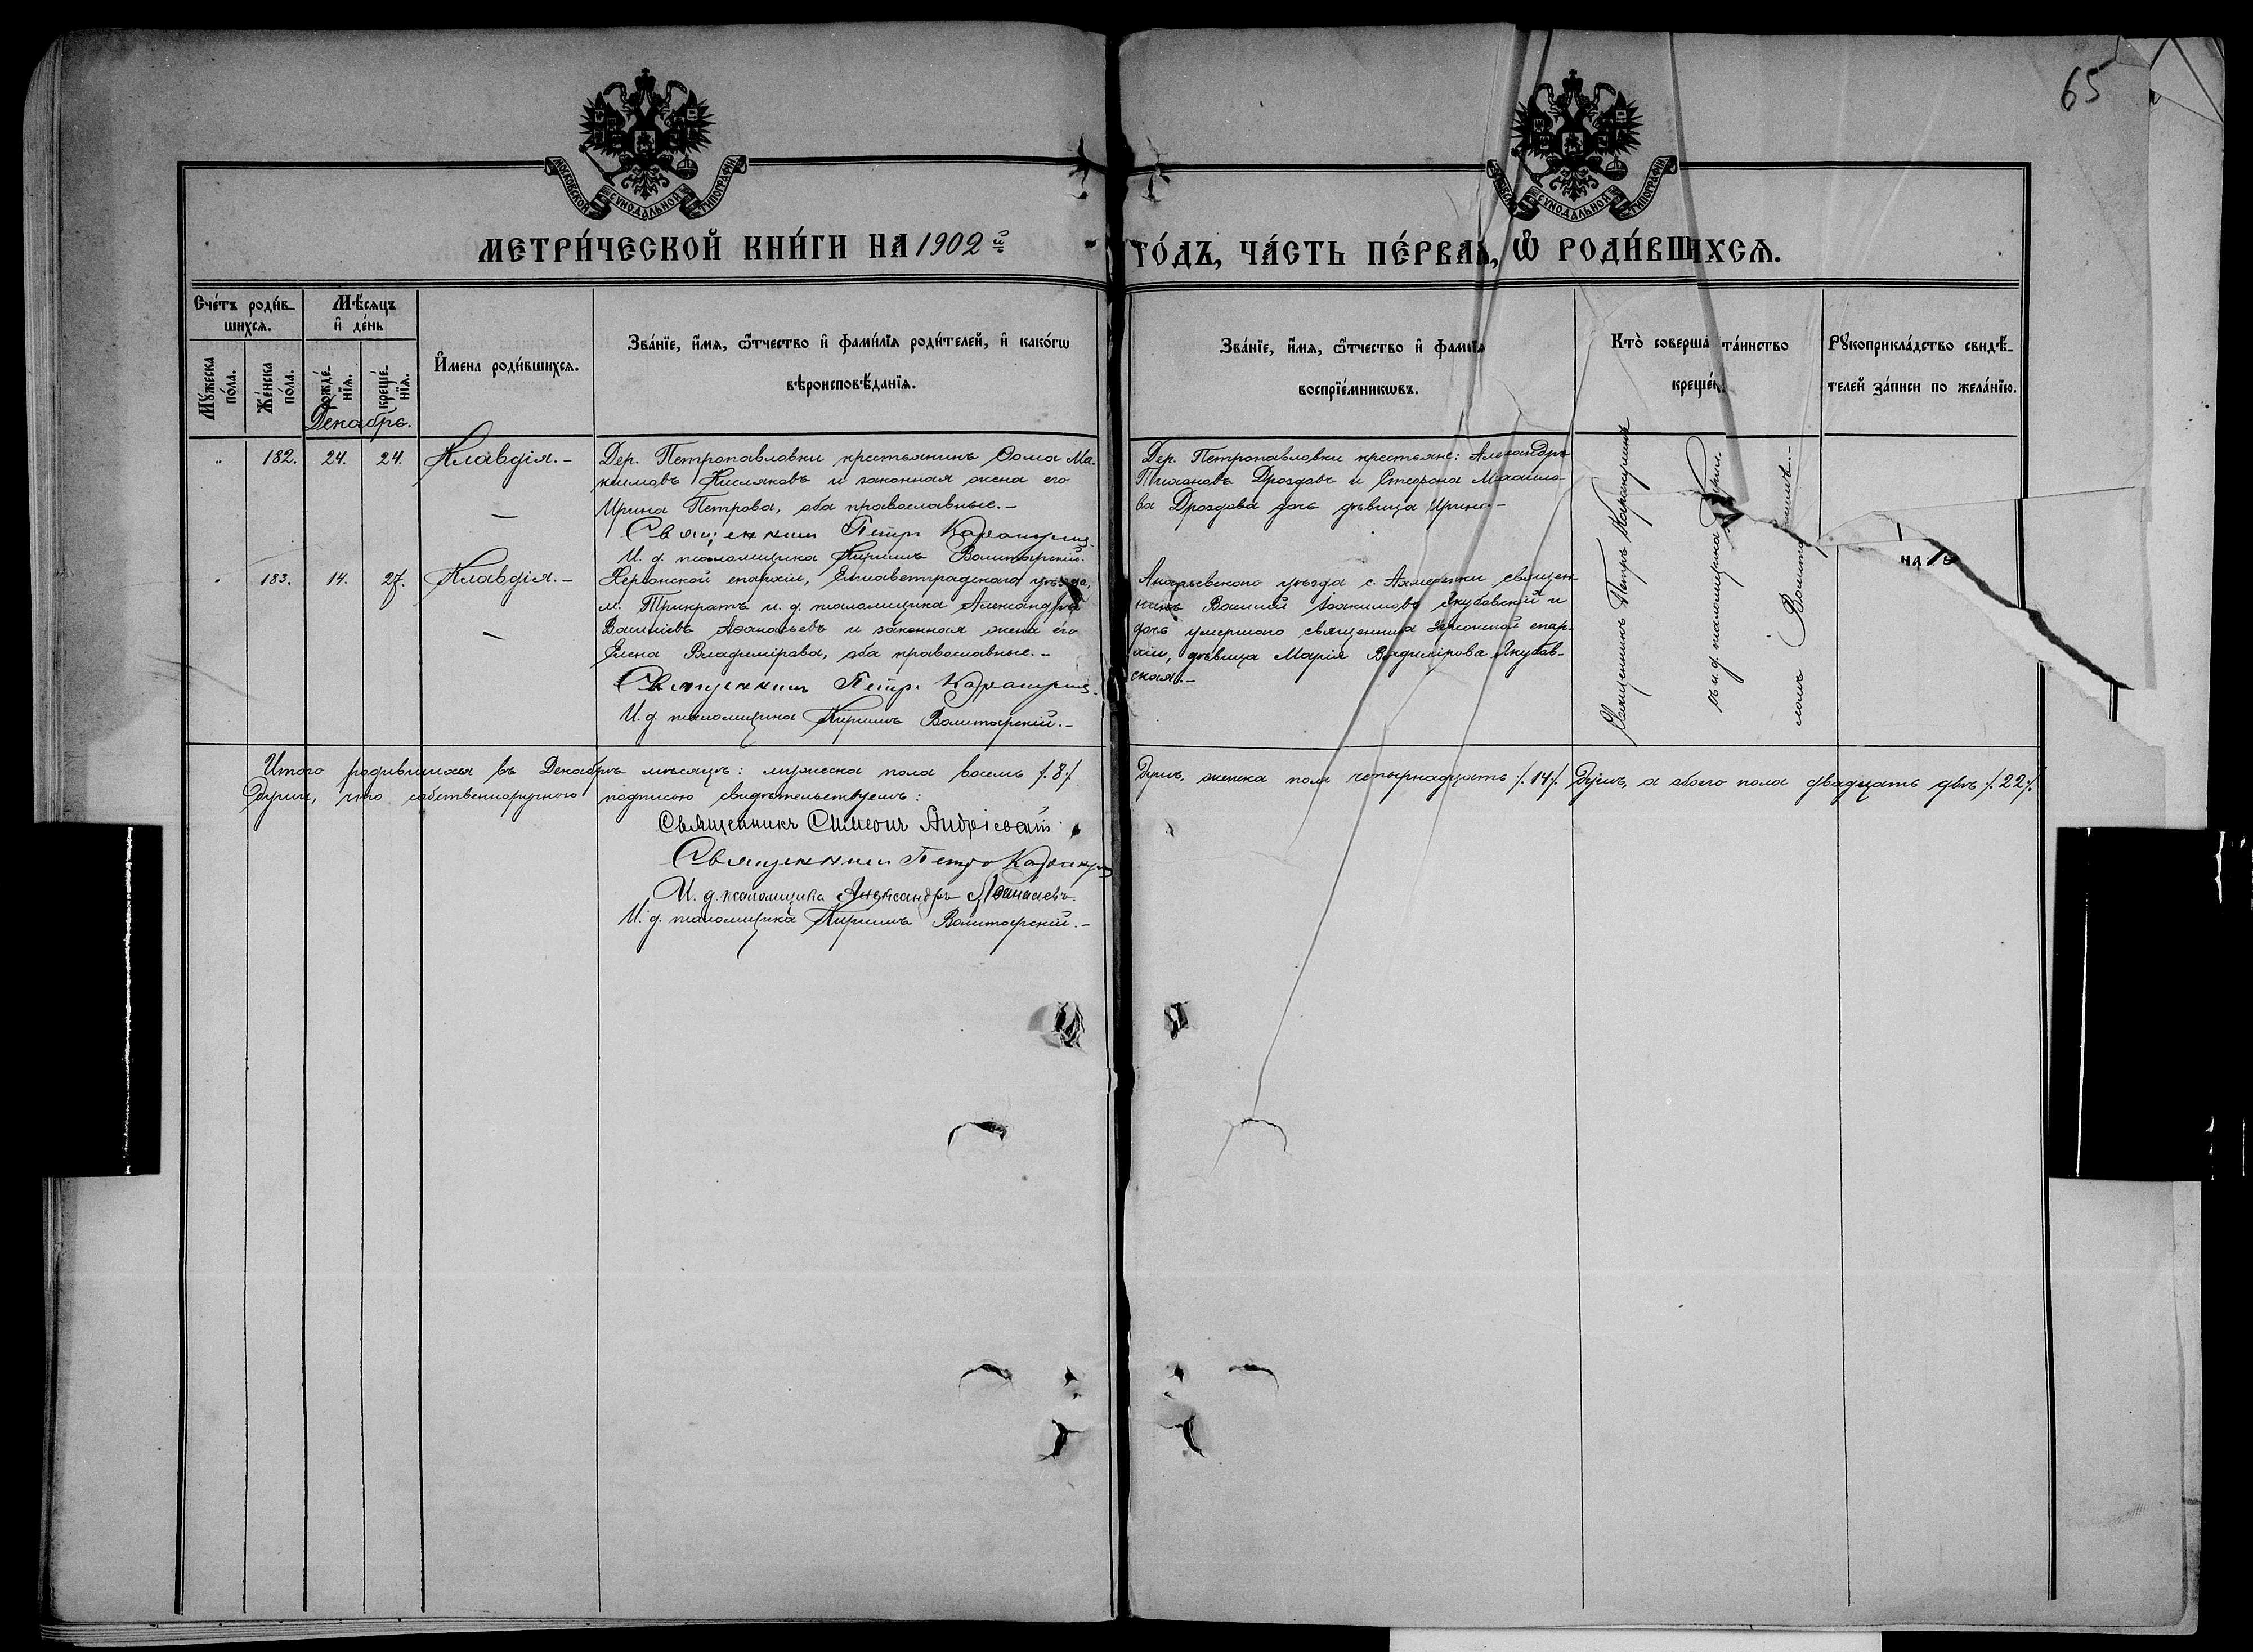 65
МОСКОВСКОЙ СѴНОДАЛЬНОЙ ТИПОГРАФІИ
СѴНОДАЛЬНОЙ ТИПОГРАФІИ
МЕТРИ́ЧЕСКОЙ КНИ́ГИ НА 1902 й
ГО́ДЪ, ЧА́СТЬ ПЕ́РВАЯ, Ѡ҆ РОДИ́ВШИХСѦ.
Сче́тъ роди́в-
шихсѧ.
Мꙋ́жеска
по́ла.
Же́нска
по́ла.
Мѣ́сѧцъ
и҆ де́нь
рожде́-
нїѧ.
креще́-
нїѧ.
Декабрь.
И҆мена роди́вшихсѧ.
Зва́нїе, и҆́мѧ, ѻ҆́тчество и҆ фами́лїѧ роди́телей, и҆ како́гѡ
вѣроисповѣ́данїѧ.
Зва́нїе, и҆́мѧ, ѻ҆́тчество и҆ фами
воспрїе́мникѡвъ.
Кто̀ соверша та́инство
креще́н
Рꙋкоприкла́дство свидѣ́-
телей за́писи по жела́нїю.
" 182. 24. 24. Клавдія. –
Дер. Петропавловки крестьянинъ Ѳома Ма-
ксимовъ Кисляковъ и законная жена его
Ирина Петрова, оба православные. –
Священникъ Петръ
И. д. псаломщика Кириллъ
Дер. Петропавловки крестьяне: Александръ
Дроздовъ и Стефана Михаило-
ва Дроздова дочь дѣвица Ирина. –
" 183. 14. 27. Клавдія. –
Херсонской епархіи, Елисаветградскаго уѣзда,
м. Трикратъ и. д. псаломщика Александръ
Василіевъ Аѳанасьевъ и законная жена его
Елена Владимірова, оба православные. –
Священникъ Петръ
И. д. псаломщика Кириллъ
Ананьевскаго уѣзда с. священ-
никъ Василій Іоакимовъ Якубовскій и
дочь умершаго священника Херсонской епар-
хіи, дѣвица Марія Владимірова Якубов-
ская. –
Священникъ Петръ
съ и. д. псаломщика
на 19
Итого родившихся въ Декабрѣ мѣсяцѣ: мужеска пола восемь /.8./
душъ, женска пола четырнадцать /.14./ душъ, а обоего пола двадцать двѣ /.22./
души, что собственноручною подписью свидѣтельствуемъ:
Священникъ Симеонъ
Священникъ Петръ
И. д. псаломщика Александръ Аѳанасьевъ.
И. д. псаломщика Кириллъ